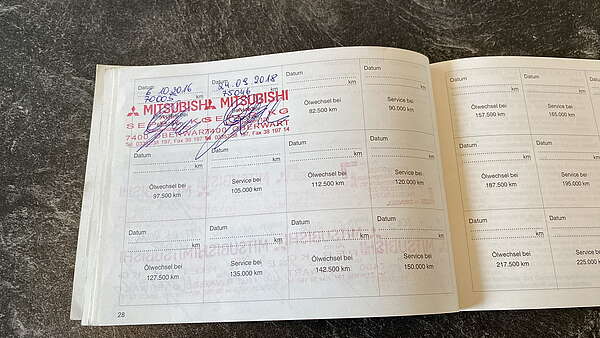 Datum Datum Datum Datum
6.10.2016 24.09.2018
70003 km 75046 km km km
MITSUBISHI MITSUBISHI
Ölwechsel bei Service bei Ölwechsel bei Service bei
82.500 km 90.000 km 157.500 km 165.000 km
7400 OBERWART
Fax 38 197 14
Datum Datum Datum Datum Datum
km km km km km
Ölwechsel bei Service bei Ölwechsel bei Service bei Ölwechsel bei Service bei
97.500 km 105.000 km 112.500 km 120.000 km 187.500 km 195.000 km
Datum Datum Datum Datum Datum
km km km km km
Ölwechsel bei Service bei Ölwechsel bei Service bei Ölwechsel bei Service bei
127.500 km 135.000 km 142.500 km 150.000 km 217.500 km 225.000 km
28